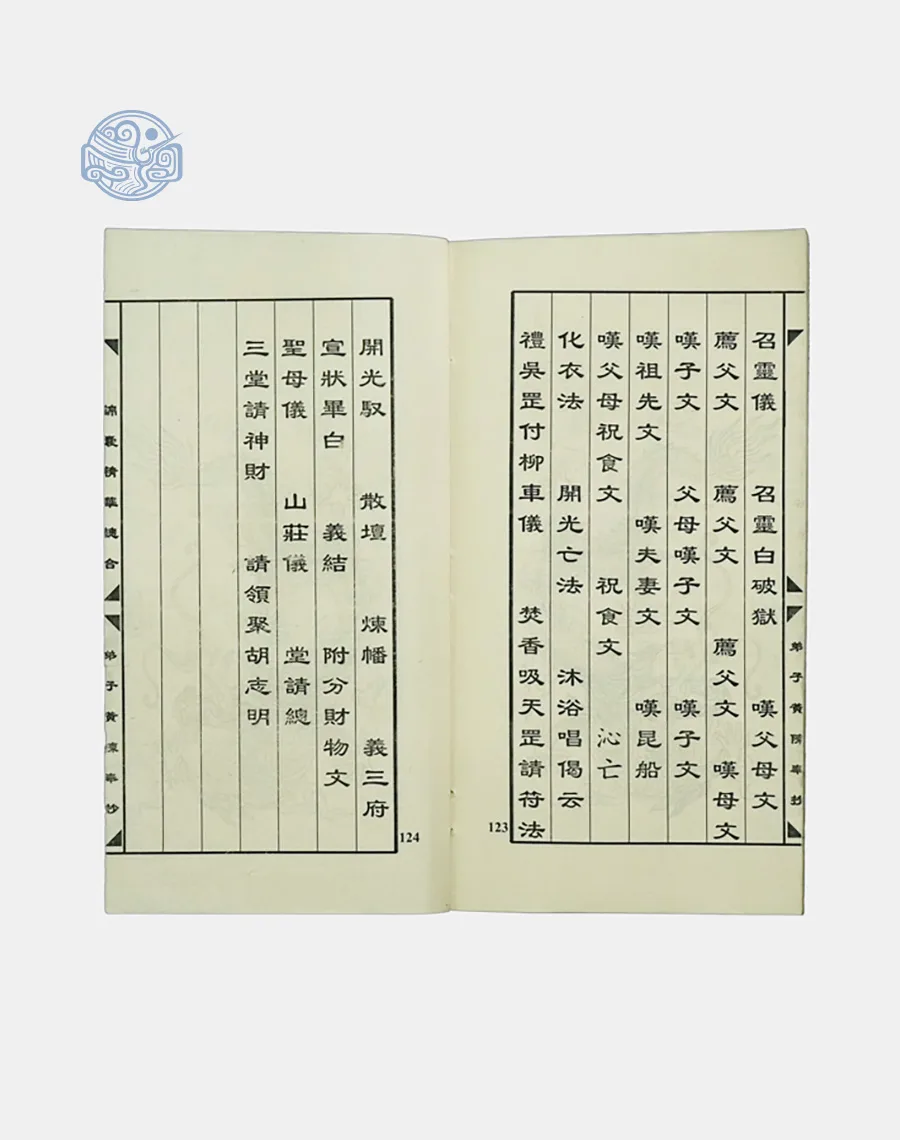 召靈儀 召靈白破獄 嘆父母文
薦父文 薦父文 薦父文 嘆母文
嘆子文 父母嘆子文 嘆子文
嘆祖先文 嘆夫妻文 嘆昆船
嘆父母祝食文 祝食文 沁亡
化衣法 開光亡法 沐浴唱偈云
禮吳罡付柳車儀 焚香吸天罡請符法
123
開光馭 散壇 煉幡 義三府
宣狀畢白 義結 附分財物文
聖母儀 山莊儀 堂請總
三堂請神財 請領聚胡志明
124